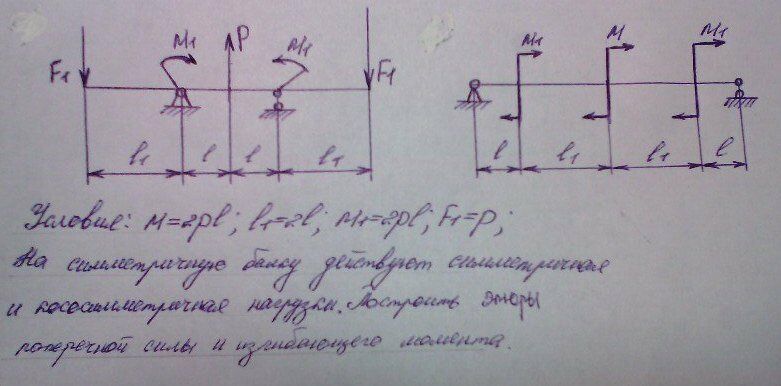 F1 M1 P M1 F1
l1 l l l1
M1 M M1
l l1 l1 l
Условие: M=2pl; l1=2l; M1=2pl; F1=p;
На симметричную балку действуют симметричная
и кососимметричная нагрузки. Построить эпюры
поперечной силы и изгибающего момента.